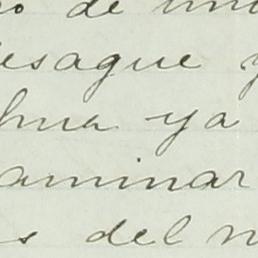 de un
esague y
hua ya
aminar
s del n